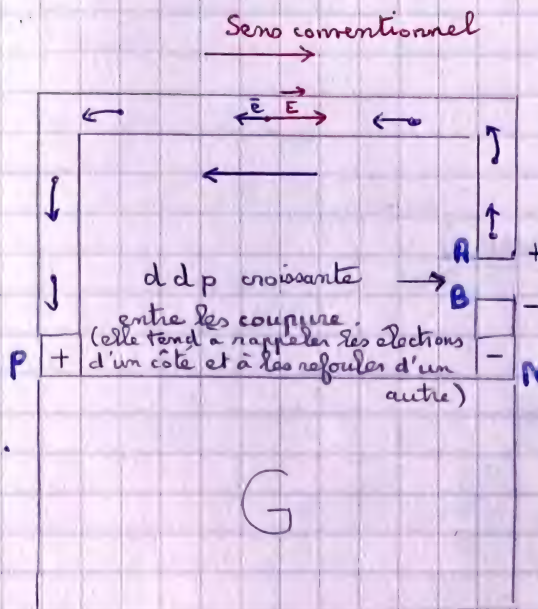 Sens conventionnel
ē E
A +
d d p croissante
B -
entre les coupure.
(elle tend a rappeler les élections
P + d'un côte et à les refouler d'un - N
autre)
G